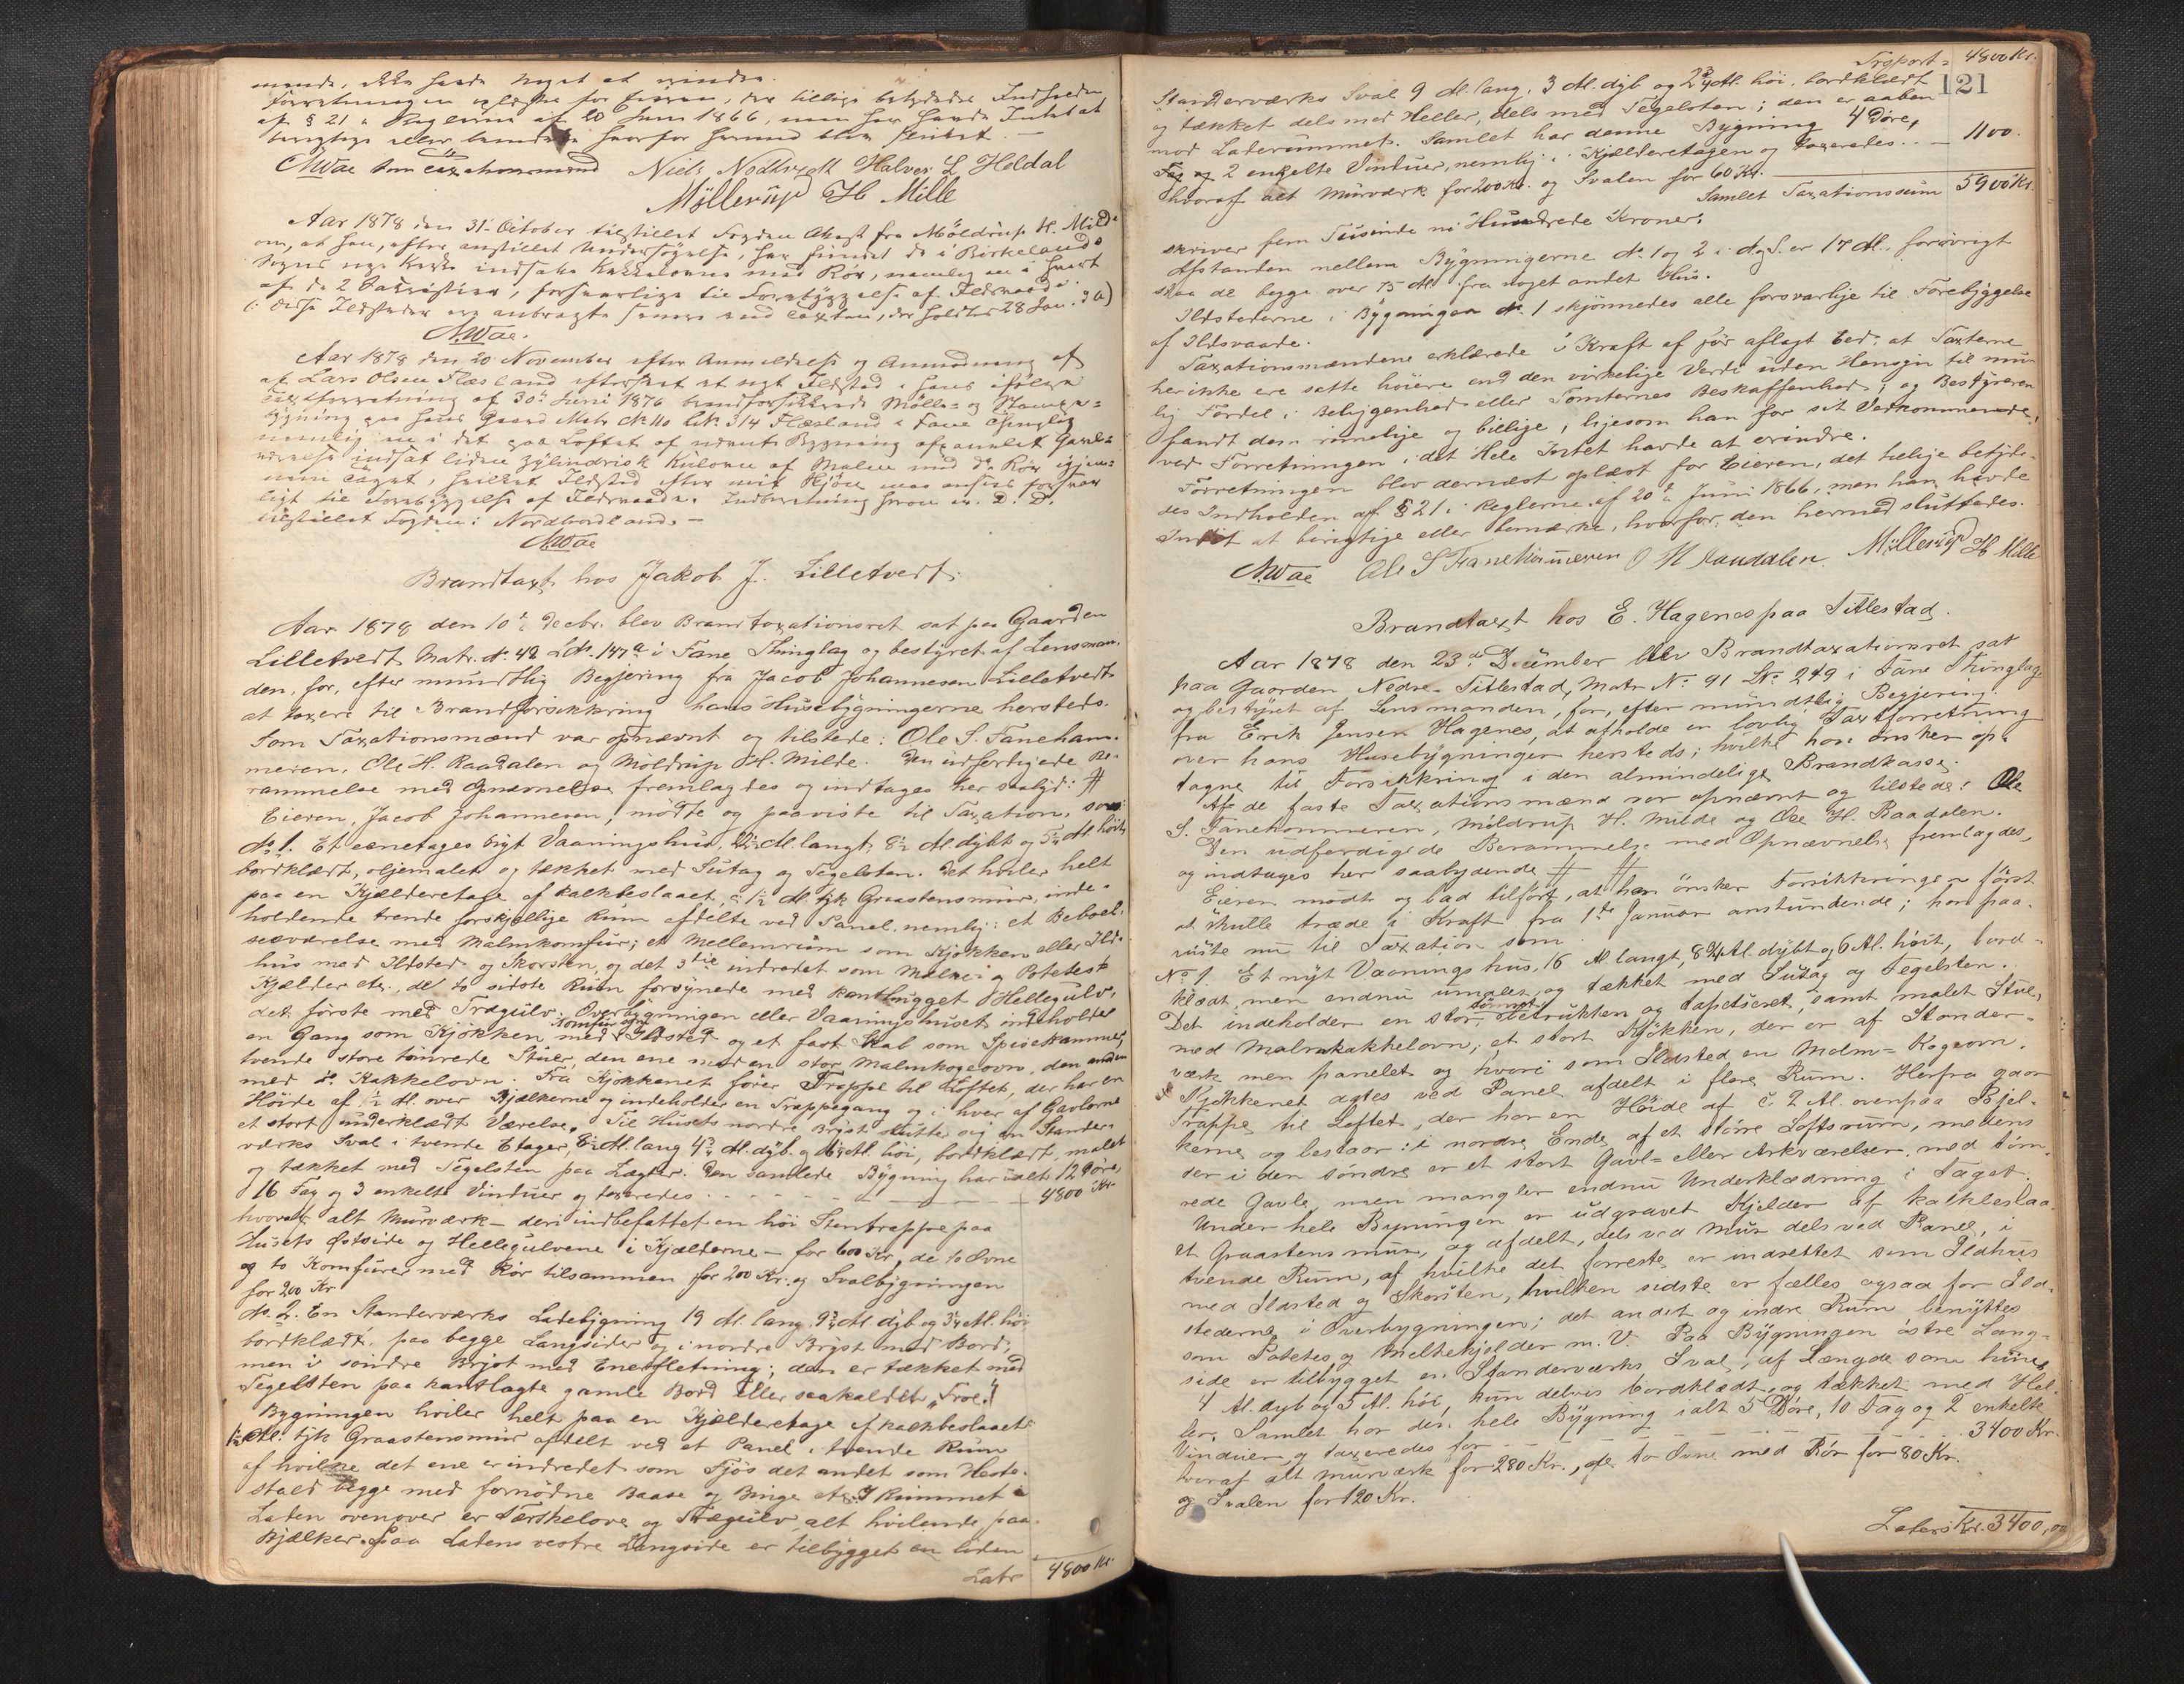 mende, ikke havde Noget at erindre.
Forretningen oplæstes for Eieren, der tillige betydedes Indholden
af § 21 i Reglerne af 20 Juni 1866, men han havde Intet at
berigtige eller bemærke hvorfor hermed blev sluttet. —
AWae som Taxationsmænd Niels Halvor L Heldal
Møllerup H Milde
Aar 1878 den 31te October tilstillet Fogden Attest fra Møldrup H. Milde
om, at han, efter anstillet Undersøgelse, har fundet de i Birkelands
Sogns nye Kirke indsatte Kakkelovne med Rør, nemlig en i hvert
af de 2 Sakristier, forsvarlige til Forebyggelse af Ildsvaade.
(: disse Ildsteder ere anbragte senere end Taxten, der holdtes 28 Jan. d. A.)
AWae.
Aar 1878 den 20 November efter Anmeldelse og Anmodning af
af Lars Olsen Flæsland eftersaaet et nyt Ildsted i hans ifølge
Taxtforretning af 30te Juni 1876 brandforsikkrede Mølle- og Stampe-
bygning paa hans Gaard Matr No 110 LNo 314 Flæsland i Fane Thinglag
nemlig en i det paa Loftet af nævnte Bygning afpanelet Gavl-
værelse indsat liden zylindrisk Kulovn af Malm med do Rør igjen-
nem Taget, hvilket Ildsted efter mit Skjøn maa ansees forsvar
ligt til Forebyggelse af Ildsvaade. Indberetning herom er D. D.
tilstillet Fogden i Nordhordland. —
AWae
Brandtaxt hos Jakob J. Lilletvedt.
Aar 1878 den 10de Decbr. blev Brandtaxationsret sat paa Gaarden
Lilletvedt Matr. No 42 LNo. 147a i Fane Thinglag og bestyret af Lensman-
den, for, efter mundtlig Begjering fra Jacob Johannesen Lilletvedt
at taxere til Brandforsikkring hans Husebygningerne hersteds.
Som Taxationsmænd var opnævnt og tilstede: Ole S. Faneham-
meren, Ole H. Raadalen og Moldrup H. Milde. Den udferdigede Be-
rammelse med Opnævnelse fremlagdes og indtages her saalyd: #
Eieren, Jacob Johannesen, mødte og paaviste til Taxation, som
No 1. Et eenetages bygt Vaaningshus, 22½ Al. langt, 8½ Al. dybt og 5¼ Al. høit,
bordklædt, oljemalet og tækket med Sutag og Tegelsten. Det hviler helt
paa en Kjælderetage af kalkbeslaaet, c 1½ Al. tyk Graastensmur, inde-
holdende trende forskjellige Rum afdelte ved Panel, nemlig: et Beboel-
sesværelse med Malmkomfur; et Mellemrum som Kjøkken eller Ild-
hus med Ildsted og Skorsten, og det 3die indredet som Melke- og Potetes-
Kjælder etc., de to sidste Rum forsynede med kanthugget Hellegulv,
det første med Trægulv. Overbygningen eller Vaaningshuset indeholder
en Gang som Kjøkken med Komfur og Ildsted og et fast Skab som Spisekammer,
tvende store tømrede Stuer, den ene med en stor Malmkogeovn, den anden
med do Kakkelovn. Fra Kjøkkenet fører Trappe til Loftet, der har en
Høide af 1½ Al. over Bjælkerne og indeholder en Trappegang og i hver af Gavlerne
et stort underklædt Værelse. Til Husets nordre Bryst slutter sig en Stander-
værks Sval i tvende Etager, 8½ Al. lang 4¾ Al. dyb og 6¼ Al. høi, bordklædt, malet
og tækket med Tegelsten paa Lægter. Den samlede Bygning har ialt 12 Døre,
16 Fag og 3 enkelte Vinduer og taxeredes . . . . . . . 4800 Kr
hvoraf alt Murværk — deri indbefattet en høi Stentrappe paa
Husets Østside og Hellegulvene i Kjælderne — for 600 Kr, de to Ovne
og to Komfurer med Rør tilsammen for 200 Kr. og Svalbygningen
for 200 Kr
No. 2. En Standerværks Ladebygning 19 Al. lang, 9¾ Al. dyb og 3¾ Al. høi
bordklædt paa begge Langsider og i nordre Bryst med Bord,
men i søndre Bryst med Enerfletning; den er tækket med
Tegelsten paa kantlagte gamle Bord eller saakaldet „Troe“.
Bygningen hviler helt paa en Kjælderetage af kalkbeslaaet
1½ Al. tyk Graastensmur afdelt ved et Panel i tvende Rum
af hvilke det ene er indredet som Fjøs det andet som Heste-
stald begge med fornødne Baase og Binge etc. I Rummet i
Laden ovenover er Tærskelove og Trægulv alt hvilende paa
Bjælker. Paa Ladens vestre Langside er tilbygget en liden
Latr. 4800 Kr.
Trsport = 4800 Kr.
121
Standerværks Sval 9 Al. lang, 3 Al. dyb og 2¾ Al. høi, bordklædt
og tækket dels med Heller, dels med Tegelsten; den er aaben
mod Laderummet. Samlet har denne Bygning 4 Døre,
Fag og 2 enkelte Vinduer, nemlig i Kjælderetagen og taxeredes . . — 1100.
hvoraf alt Murværk for 200 Kr. og Svalen for 60 Kr.
Samlet Taxationssum 5900 Kr.
skriver fem Tusinde ni Hundrede Kroner.
Afstanden mellem Bygningerne No 1 og 2 i N. og S. er 17 Al. forøvrigt
staa de begge over 75 Al. fra noget andet Hus.
Ildstederne i Bygningen No. 1 skjønnedes alle forsvarlige til Forebyggelse
af Ildsvaade.
Taxationsmændene erklærede i Kraft af før aflagt Eed, at Taxterne
her ikke ere satte høiere end den virkelige Værdi uden Hensyn til mu-
lig Fordel i Beliggenhed eller Tomternes Beskaffenhed; og Bestyreren
fandt dem rimelige og billige, ligesom han for sit Vedkommende,
ved Forretningen, i det Hele Intet havde at erindre.
Forretningen blev dernæst oplæst for Eieren, det tillige betyde-
des Indholden af § 21 i Reglerne af 20de Juni 1866, men han havde
Intet at berigtige eller bemærke, hvorfor den hermed sluttedes.
AWae Ole S Fanehammeren O H Raudalen. Møllerup H Milde
Brandtaxt hos E. Hagenes paa Titlestad.
Aar 1878 den 23de December blev Brandtaxationsret sat
paa Gaarden Nedre-Titlestad, Matr No. 91 LNo. 249 i Fane Thinglag
og bestyret af Lensmanden, for, efter mundtlig Begjering
fra Erik Jensen Hagenes, at afholde en lovlig Taxtforretning
over hans Husebygninger hersteds; hvilke han ønsker op-
tagne til Forsikkring i den almindelige Brandkasse.
Af de faste Taxationsmænd var opnævnt og tilstede: Ole
S. Fanehammeren, Møldrup H. Milde og Ole H. Raadalen.
Den udferdigede Berammelse med Opnævnelse fremlagdes,
og indtages her saalydende # #
Eieren mødte og bad tilført, at han ønsker Forsikkringen først
at skulle træde i Kraft fra 1ste Januar anstundende; han paa-
viiste nu til Taxation som
No 1. Et nyt Vaaningshus, 16 Al. langt, 8¾ Al. dybt og 6 Al. høit, bord-
klædt, men endnu umalet, og tækket med Sutag og Tegelsten.
Det indeholder en stor, tømret, betrukken og tapetseret, samt malet Stue,
med Malmkakkelovn, et stort Kjøkken, der er af Stander-
værk men panelet og hvori som Ildsted en Malm-Kogeovn.
Kjøkkenet agtes ved Panel afdelt i flere Rum. Herfra gaar
Trappe til Loftet, der har en Høide af c. 2 Al. ovenpaa Bjel-
kerne og bestaar i nordre Ende af et større Loftsrum, medens
der i den søndre er et stort Gavl- eller Arkværelse, med tøm-
rede Gavle men mangler endnu Underklædning i Taget.
Under hele Bygningen er udgravet Kjelder af kalkbeslaa-
et Graastensmur, og afdelt, dels ved Mur dels ved Panel, i
tvende Rum, af hvilke det forreste er indrettet som Ildhus
med Ildsted og Skorsten, hvilken sidste er fælles ogsaa for Ild-
stederne i Overbygningen; det andet og indre Rum benyttes
som Potetes og Melkekjelder m. V. Paa Bygningens østre Lang-
side er tilbygget en Standerværks Sval, af Længde som huset
4 Al. dyb og 5 Al. høi, kun delvis bordklædt, og tækket med Hel-
ler, Samlet har den hele Bygning ialt 5 Døre, 10 Fag og 2 enkelte
Vinduer og taxeredes for . . . . . . . 3400 Kr.
hvoraf alt Murværk for 280 Kr., de to Ovne med Rør for 80 Kr.
og Svalen for 120 Kr.
Lateris Kr. 3400,00